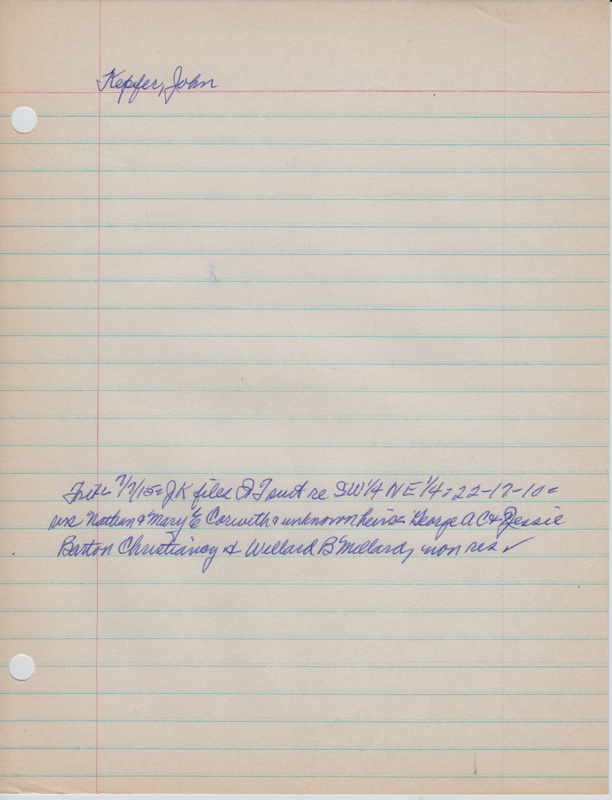 Kepfer, John
7/7/15= JK files QT suit re SW 1/4 NE 1/4= 22-17-10=
vs Nathan & Mary E Corwith & unknown heirs= George A C & Jessie
Barton Christiancy & Willard B Millard, non res ✓